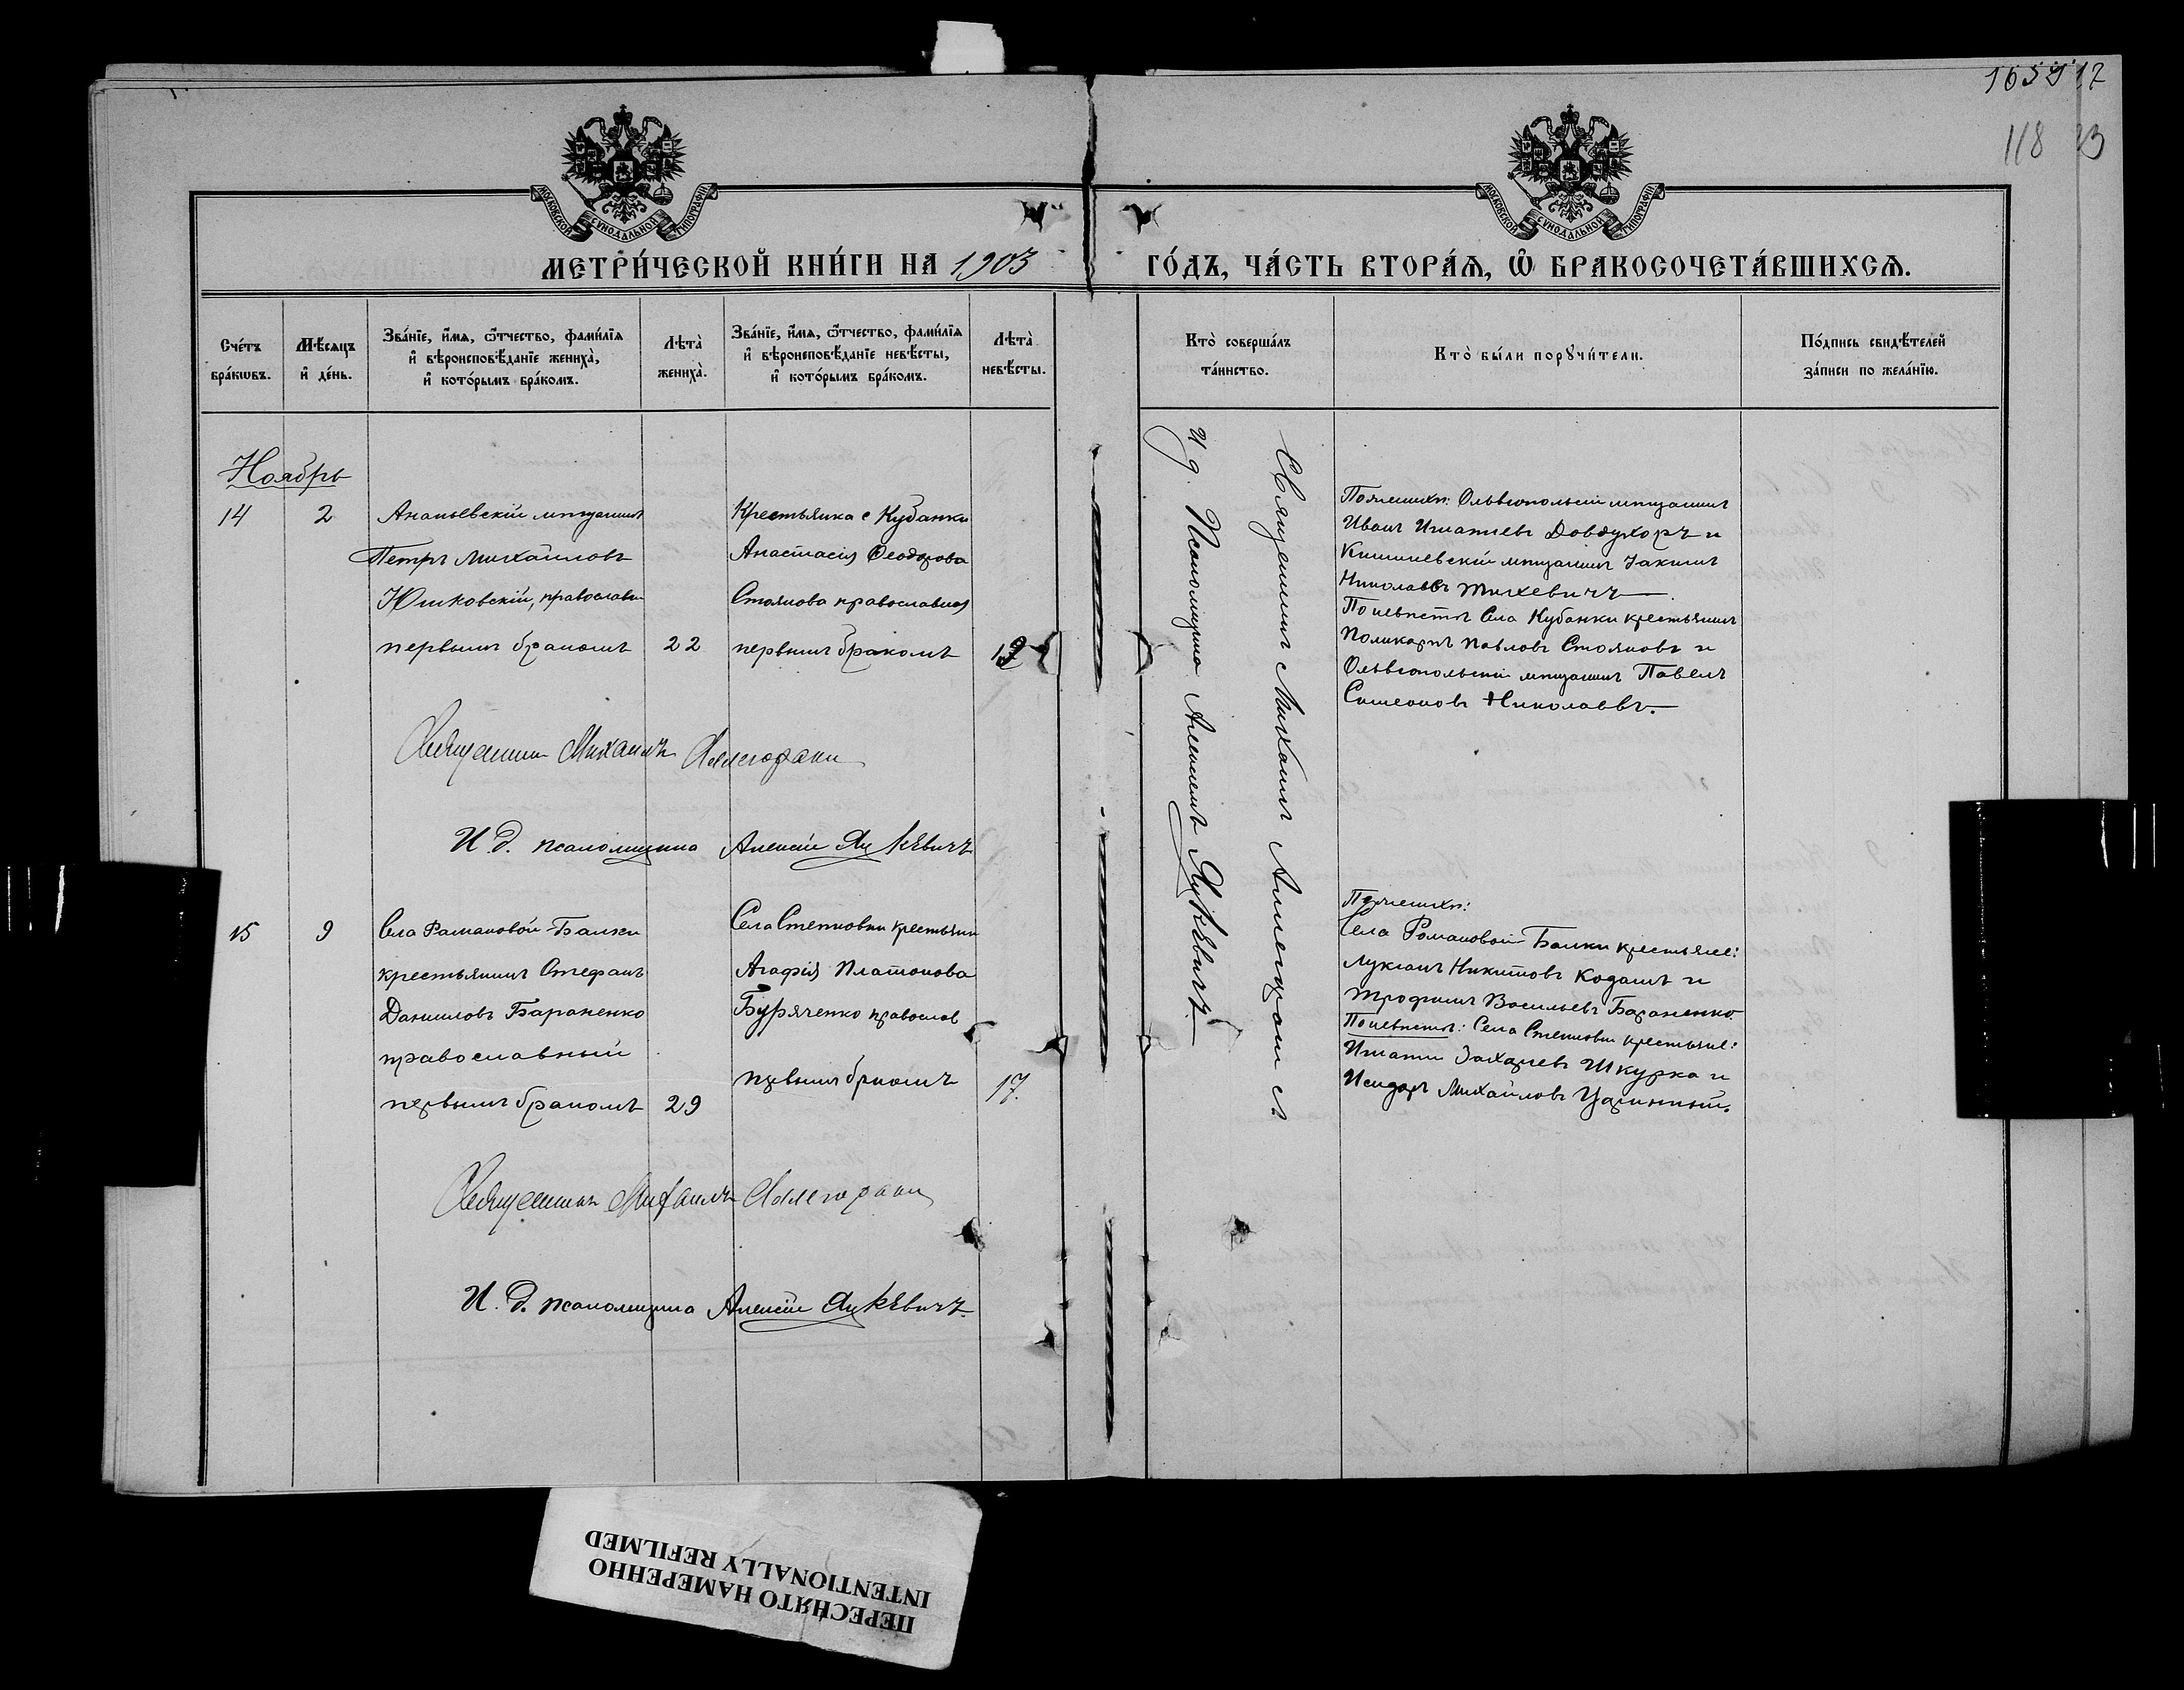 165912
118 23
МОСКОВСКОЙ СУНОДАЛЬНОЙ ТИПОГРАФІИ
МОСКОВСКОЙ СУНОДАЛЬНОЙ ТИПОГРАФІИ
МЕТРИ́ЧЕСКОЙ КНИ́ГИ НА 1903 ГО́ДЪ, ЧА́СТЬ ВТОРА́Ѧ, Ѽ БРАКОСОЧЕТА́ВШИХСѦ.
Сче́тъ бра́кѡвъ.
Мѣ́сѧцъ и҆ де́нь.
Зва́нїе, и҆́мѧ, ѻ҆́тчество, фами́лїѧ и҆ вѣроисповѣ́данїе жениха̀, и҆ кото́рымъ бра́комъ.
Лѣта̀ жениха̀.
Зва́нїе, и҆́мѧ, ѻ҆́тчество, фами́лїѧ и҆ вѣроисповѣ́данїе невѣ́сты, и҆ кото́рымъ бра́комъ.
Лѣта̀ невѣ́сты.
Кто̀ соверша́лъ та́инство.
Кто̀ бы́ли порꙋчи́тели.
По́дпись свидѣ́телей за́писи по жела́нїю.
Ноябрь
14
2
Ананьевскій мѣщанинъ
Петръ Михайловъ
Юшковскій, православн
первымъ бракомъ
22
Крестьянка с Кубанки
Анастасія Ѳеодорова
Стоянова православная
первымъ бракомъ
19
Священникъ Михаилъ
И. д. псаломщика Алексій Яцкевичъ
Священникъ Михаилъ
И д. Псаломщика Алексѣемъ Яцкевичъ
По женихѣ: Ольвіопольскій мѣщанинъ
Иванъ Игнатіевъ Довдухоръ и
Кишиневскій мѣщанинъ Іакимъ
Николаевъ Михевичъ.
По невѣстѣ Села Кубанки крестьянинъ
Поликарпъ Павловъ Стояновъ и
Ольвіопольскій мѣщанинъ Павелъ
Симеоновъ Николаевъ.
15
9
Села Романовой-Балки
крестьянинъ Стефанъ
Даниловъ Бараненко
православный
первымъ бракомъ
29
Села Степковки крестьянк
Агафія Платонова
Буряченко православ
первымъ бракомъ
17.
По женихѣ:
Села Романовой-Балки крестьяне:
Лукіанъ Никитовъ Кодашъ и
Трофимъ Васильевъ Бараненко.
По невѣстѣ: Села Степковки крестьяне:
Игнатій Захаріевъ Шкурка и
Исидоръ Михайловъ Царинный.
Священникъ Михаилъ
И. д. псаломщика Алексій Яцкевичъ.
ПЕРЕСНЯТО НАМЕРЕННО
INTENTIONALLY REFILMED